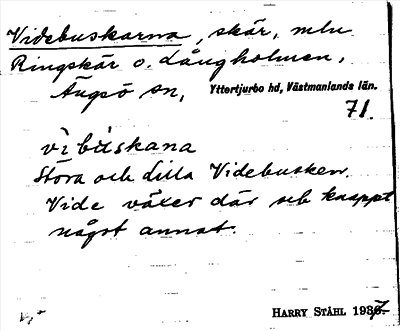 Videbuskarna, skär, mln
Ringskär o. Långholmen,
Ängsö sn, Yttertjurbo hd, Västmanlands län.
71.
vìbùskana
Stora och Lilla Videbusken.
Vide växer där och knappt
något annat.
HARRY STÅHL 1937.